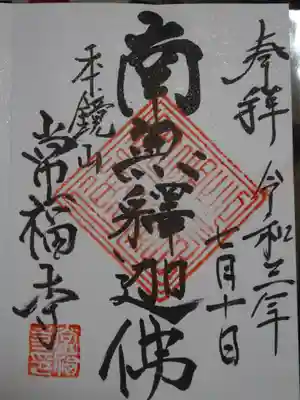 奉拝
令和三年
七月十日
南無釋迦佛
平鏡山
常福寺